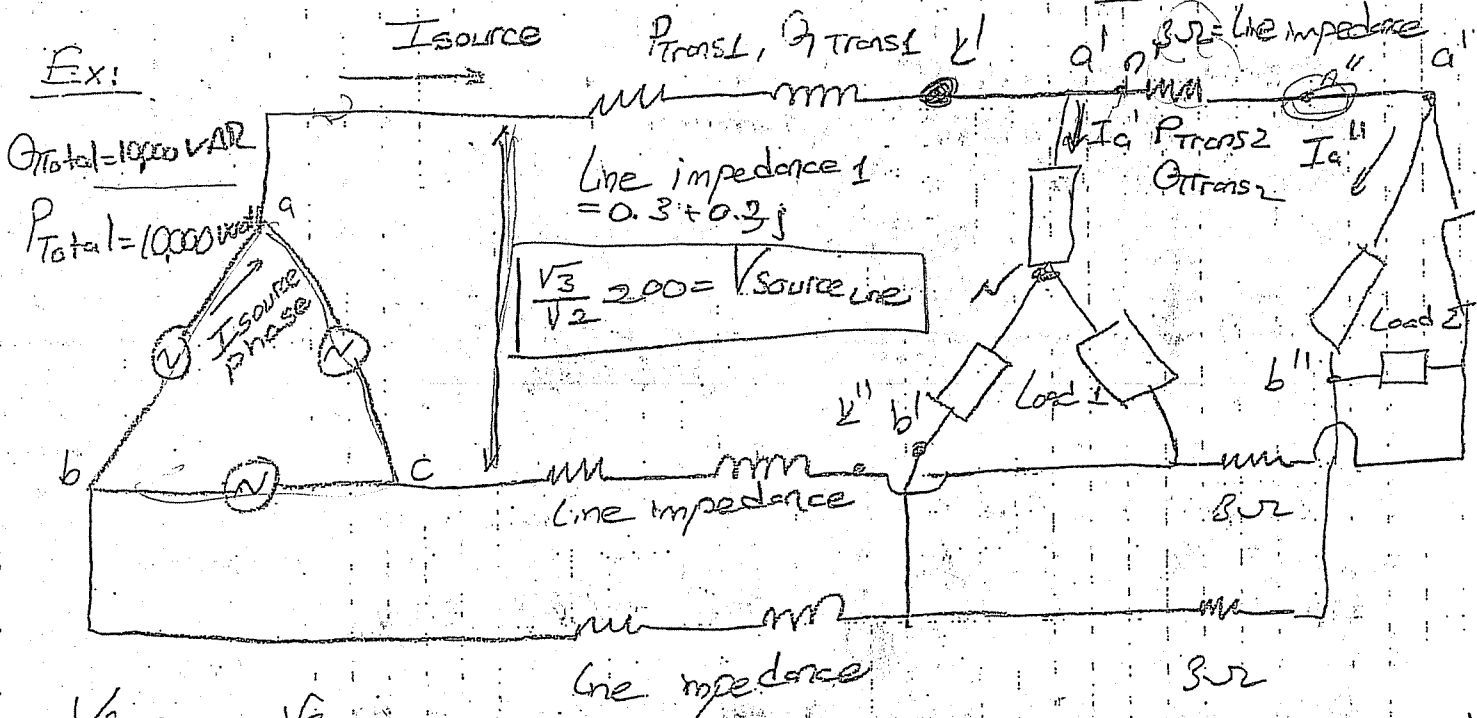 Ex:
Isource
PTrans1, QTrans1
k'
a'
n'
3Ω = Line impedance
a'
QTotal=10,000 VAR
PTotal=10,000 watt
a
Line impedance 1
= 0.3 + 0.3j
√3/√2 200 = Vsource Line
Isource phase
Ia'
PTrans2
QTrans2
Ia''
N
Load 1
Load 2
k''
b'
b''
b
c
Line impedance
3Ω
Line impedance
3Ω